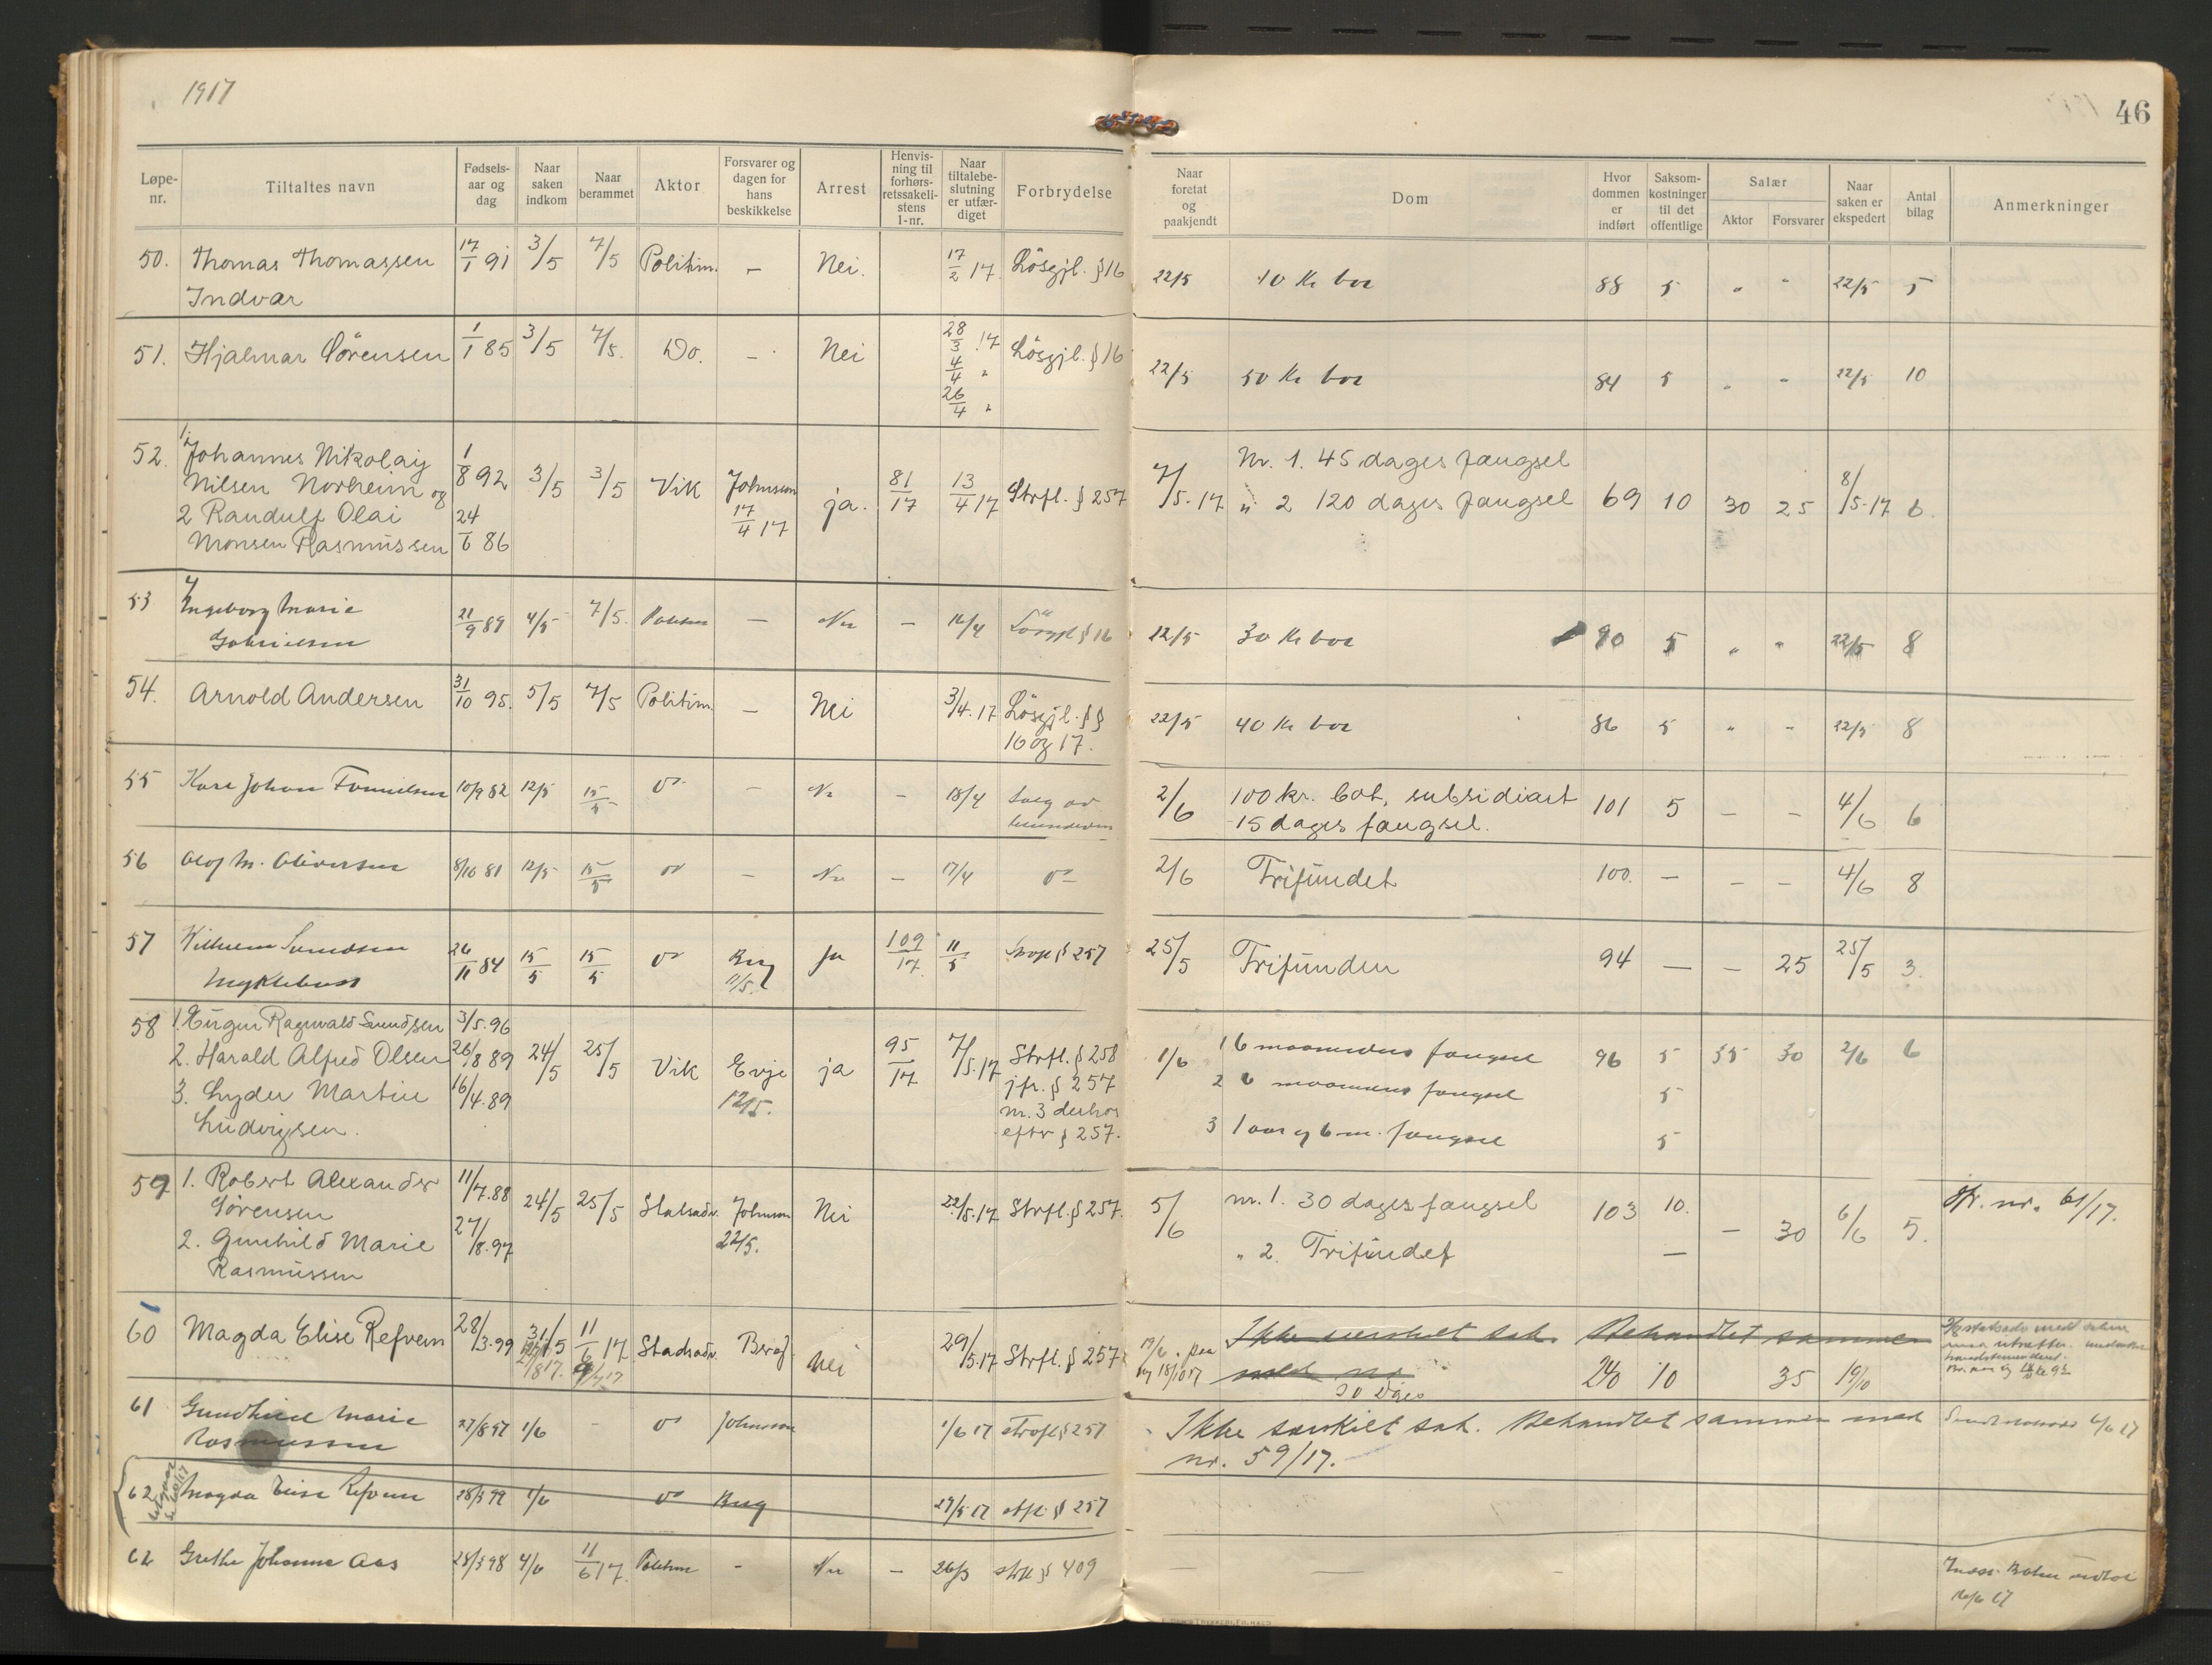 1917
46
Løpe-nr.
Tiltaltes navn
Fødsels-aar og dag
Naar saken indkom
Naar berammet
Aktor
Forsvarer og dagen for hans beskikkelse
Arrest
Henvis-ning til forhørs-retssakeli-stens l-nr.
Naar tiltalebe-slutning er utfær-diget
Forbrydelse
Naar foretat og paakjendt
Dom
Hvor dommen er indført
Saksom-kostninger til det offentlige
Salær
Aktor
Forsvarer
Naar saken er ekspedert
Antal bilag
Anmerkninger
50. Thomas Thomassen 17/1 91 3/5 7/5 Politim. – Nei. 17/2 17 Løsgjl. § 16 22/5 10 Kr bot 88 5 " " 22/5 5
Indvær
51. Hjalmar Sørensen 1/1 85 3/5 7/5. Do. – Nei 28/3 17 Løsgjl. § 16 22/5 50 Kr bot 84 5 " " 22/5 10
4/4 "
26/4 "
52. 1. Johannes Nikolay 1/8 92 3/5 3/5 Vik Johnson ja. 81/17 13/4 17 Strfl. § 257 7/5-17 Nr. 1. 45 dages fængsel 69 10 30 25 8/5-17 6.
Nilsen Norheim og 17/4 17 " 2 120 dages fængsel
2 Randulf Olai 24/6 86
Monsen Rasmussen
53 Ingeborg Marie 21/9 89 4/5 7/5. – – 16/4 § 16 22/5 30 Kr bot 90 5 " " 22/5 8
Gabrielsen
54. Arnold Andersen 31/10 95. 5/5 7/5 Politim. – Nei 3/4.17 Løsgjl. §§ 22/5 40 Kr bot 86 5 " " 22/5 8
16 og 17.
55 Johan 10/9 82 12/5 15/5 – – 18/4 Salg av 2/6 100 kr. bot, subsidiært 101 5 – – 4/6 6
15 dages fængsel.
56 M. 8/10 81 12/5 15/5 – – 17/4 2/6 Frifundet 100. – – – 4/6 8
57 Vilhelm Svendsen 26/11 84 15/5 15/5 Berg Ja 109/17 11/5 § 257 25/5 Frifunden 94 – – 25 25/5 3.
Myklebust 11/5.
58 1. Eugen Ragnvald Svendsen 3/5.96 24/5 25/5 Vik Evje ja 95/17 7/5.17 Strfl. § 258 1/6 1 6 maaneders fængsel 96 5 35 30 2/6 6
2. Harald Alfred Olsen 26/8 89 12/5. jfr. § 257 2 6 maaneders fængsel 5
3. Lyder Martin 16/4.89 nr. 3 derhos 3 1 aar og 6 m. fængsel 5
Ludvigsen. efter § 257.
59 1. Robert Alexander 11/7.88 24/5 25/5 Statsadv. Johnson Nei 22/5.17 Strfl. § 257. 5/6 nr. 1. 30 dages fængsel 103 10. – 30 6/6 5. nr. 61/17.
Sørensen 22/5.
2. Gunhild Marie 27/8.97 " 2. Frifundet –
Rasmussen
60 Magda Elise Refvem 28/3.99 31/5 11/6 17. Statsadv. Berg. Nei 29/5.17 Strfl. § 257 Ikke særskilt sak. Behandlet sammen
med nr
30 dages 240 10 35 19/10
61 Gundhild Marie 27/8 97 1/6 – Johnson 1/6 17 § 257 Ikke særskilt sak. Behandlet sammen med
Rasmussen nr. 59/17.
62 Magda Elise Refvem 28/3 99 1/6 Berg 29/5 17 § 257
62 Grethe Johanne Aas 28/3 98 4/6 11/6 17. – – 26/3 § 409 – – –